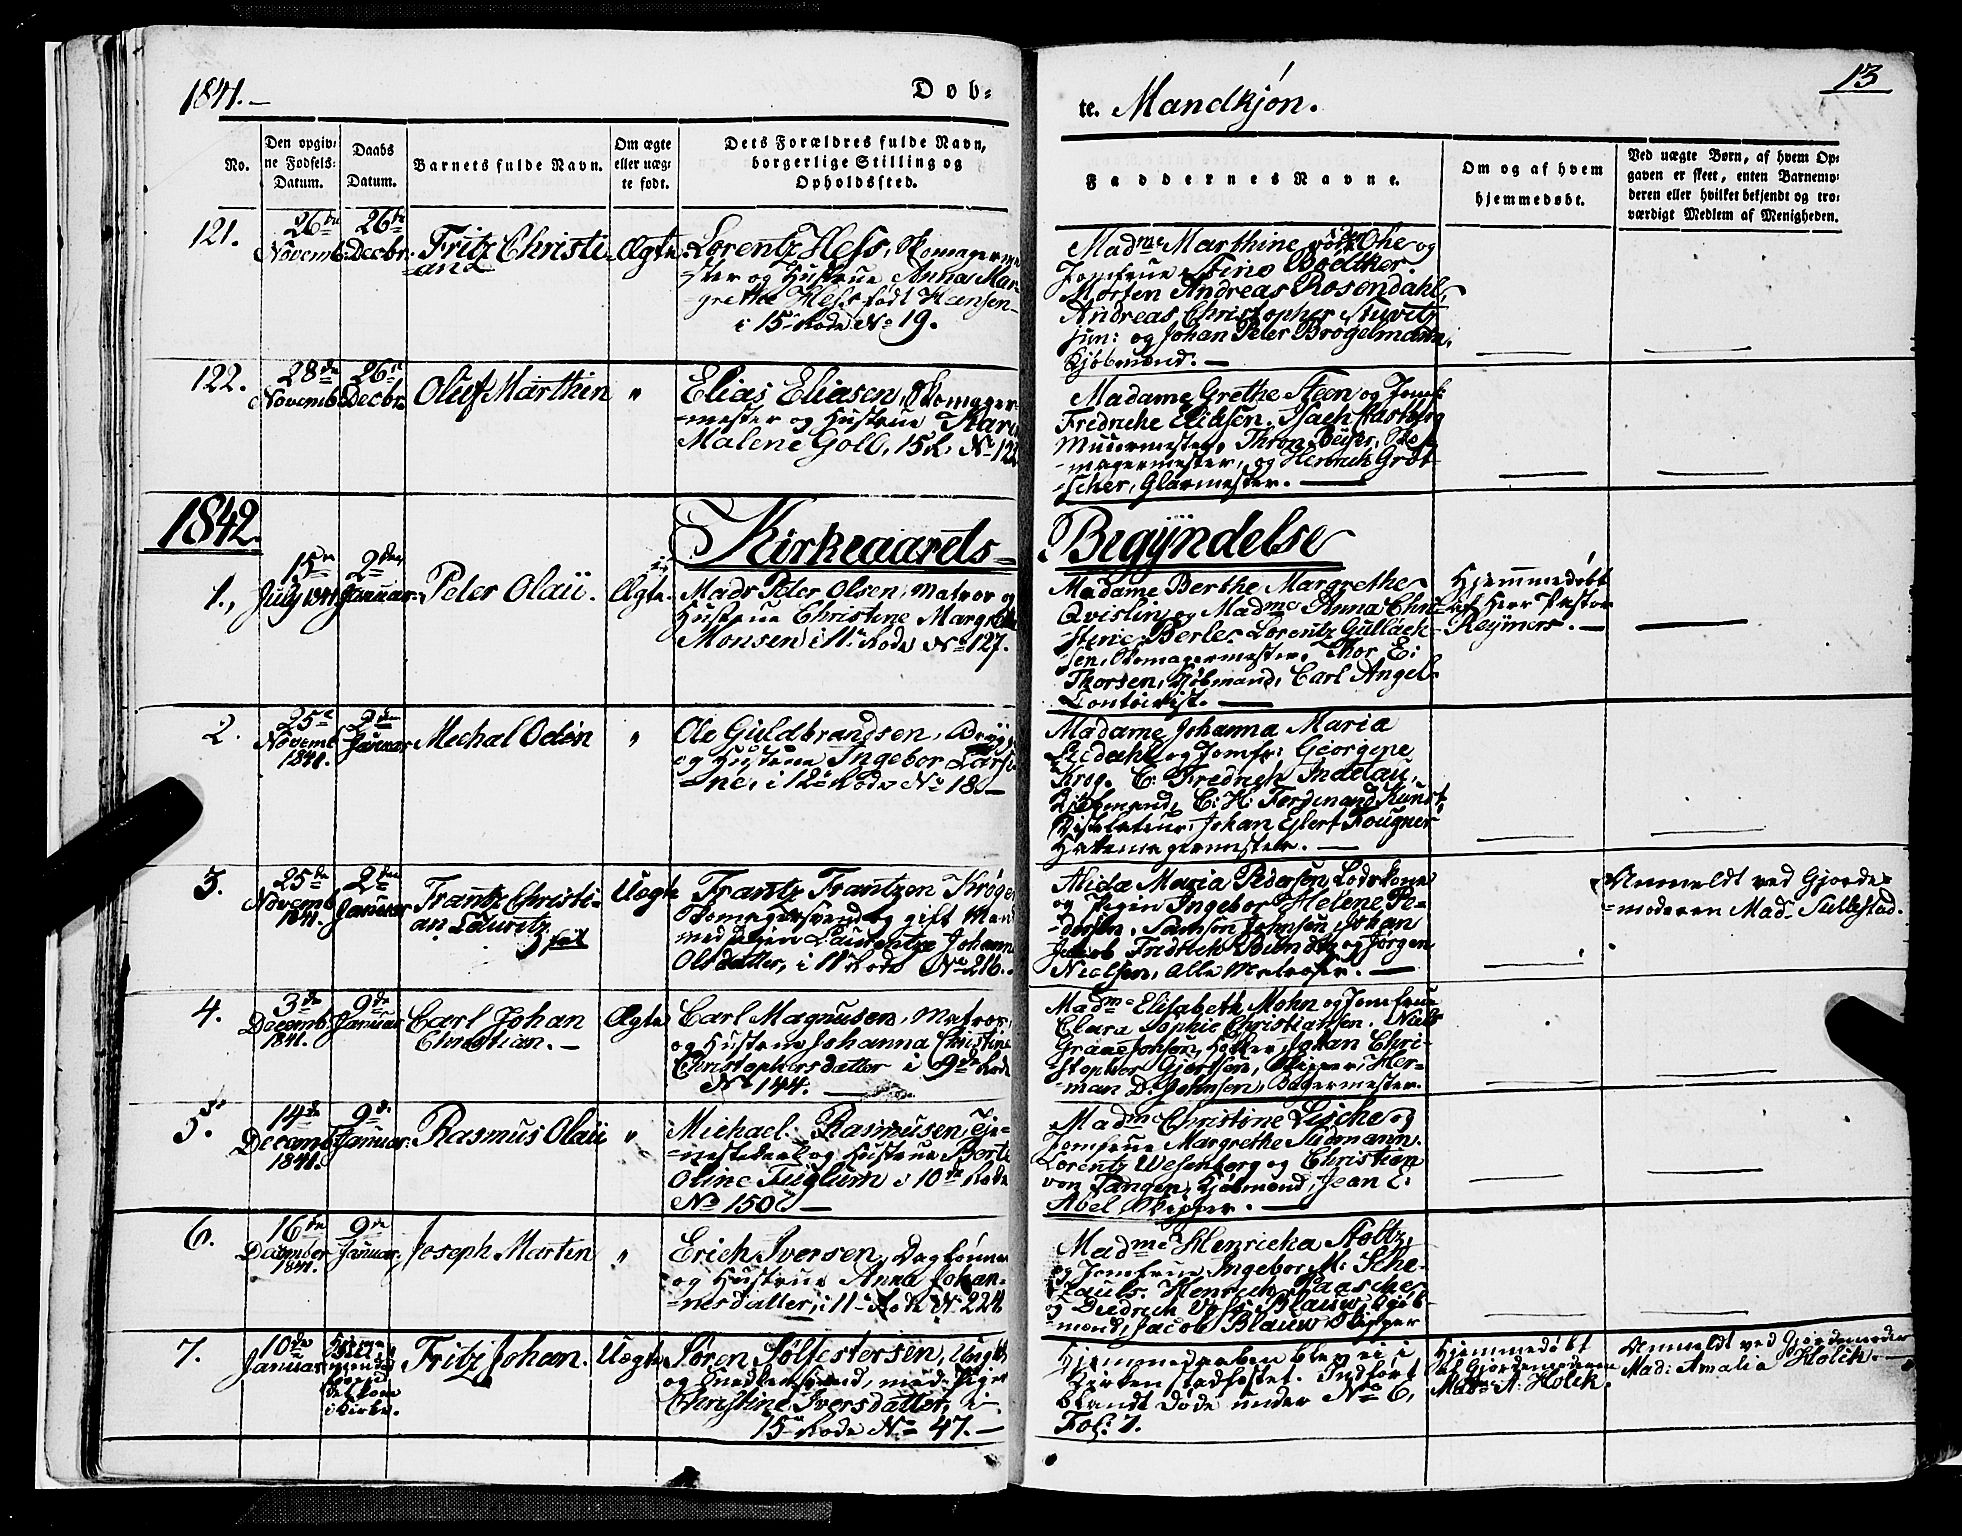 1841.—
Døb-
te. Mandkjøn.
13
No.
Den opgiv-
ne Fødsels-
Datum.
Daabs
Datum.
Barnets fulde Navn.
Om ægte
eller uæg-
te født.
Dets Forældres fulde Navn,
borgerlige Stilling og
Opholdssted.
Faddernes Navne.
Om og af hvem
hjemmedøbt.
Ved uægte Børn, af hvem Op-
gaven er skeet, enten Barnemo-
deren eller hvilket bekjendt og tro-
værdigt Medlem af Menigheden.
121.
26de
Novemb.
26de
Decbr.
Fritz Christi-
an
Ægte
Lorentz Hess, Skomagerme
ster og Hustrue Anna Mar
grethe Hess født Hansen
i 15 Rode No 19.
Madme Marthine Ohe og
Jomfrue Stine Bødtker.
Morten Andreas Rosendahl,
Andreas Christopher Stuvitz
jun: og Johan Peter Brøgelmann,
Kjøbmænd.—
122.
28de
Novemb.
26de
Decbr.
Oluf Marthin
"
Elias Eliasen, Skomager-
mester og Hustrue Karen
Malene Goll, 15 R. No 122
Madame Grethe Steen og Jomf:
Fredricke Eliasen. Isach Kasborg
Muurmester, Thron Beyer, Sko-
magermester, og Henrich Grøt-
scher, Glarmester.—
1842.
Kirkeaarets-
Begyndelse
1.,
15de
July 1841
2den
Januar.
Peter Olaii.
Ægte.
Mads Peter Olsen, Matros og
Hustrue Christine Margrethe
Monsen i 11. Rode No 127.
Madame Berthe Margrethe
Qvislin og Madme Anna Chri-
stine Berle. Lorentz Gullach-
sen, Skomagermester. Thor E:
Thorsen, Kjøbmand, Carl Angel
Contoirist.—
Hjemmedøbt
af Herr Pastor
Reymers.—
2.
25de
Novemb
1841.
2den
Januar
Mechal Odén
"
Ole Guldbrandsen, Brygg
og Hustrue Ingebor Lars
ne, i 12 Rode No 18.—
Madame Johanna Maria
Liedahl og Jomfr: Georgene
Krog. C. Fredrich Indetau,
Kjøbmand, C: H: Ferdinand Kunst,
Destilateur, Johan Eilert Fougner
Hattemagermester.—
3.
25de
Novemb
1841.
2den
Januar
Frantz Christi-
an Lauritz.
Uægte
Frantz Frantzen Krøger
Skomagersvend og gift Mand
med Pigen Laurentze Johanne
Olsdatter, i 11 Rode No 216.
Alida Maria Pedersen Lodskone
og Pigen Ingebor Helene Pe-
dersen. Samson Johnsen, Johan
Jacob Fredrich Bendix og Jørgen
Nielsen, Alle Matroser.—
Anmeldt ved Gjorde-
moderen Mad. Sullestad.
4.
3de
Decemb.
1841.
9de
Januar
Carl Johan
Christian.—
Ægte
Carl Magnusen, Matros,
og Hustrue Johanna Christine
Christophersdatter i 9de Rode
No 144.—
Madme Elisabeth Mohn og Jomfrue
Clara Sophie Christiansen. Niels
Grave Jonsen, Høker, Johan Chri-
stopher Gjertsen, Skipper, Her-
man D. Johnsen, Bagermester.
5.
14de
Decemb
1841.
9de
Januar.
Rasmus Olaii
"
Michael Rasmusen, Tje-
nestekarl og Hustrue Berte
Oline Fuglum i 10de Rode
No 150.—
Madme Christine Lische og
Jomfrue Margrethe Sudmann.
Lorentz Wesenberg og Christian
von Tangen, Kjøbmænd, Jean C:
Abel Skipper.—
6.
16de
December
1841.
9de
Januar.
Joseph Martin
"
Erich Iversen, Daglønner
og Hustrue Anna Johan-
nesdatter, i 11 Rode No 224
Madme Henricka Stoltz,
og Jomfrue Ingebor M: Sche-
Henrich Paasche
og Diedrich Voss Blauw, Kjøb-
mænd, Jacob Blauw Skipper
7.
10de
Januar
i Kirke.
Fritz Johan.
Uægte
Søren Solfestersen, Ungk:
og Snedkersvend, med Pigen
Christine Iversdatter, i
15 Rode No 47.—
Hjemmedaaben blev ei i
Kirken stadfæstet. Indført
blandt døde under No 6,
Fol: 1.
Hjemmedøbt
af Gjordemoderen
Mad: A. Holck.
Anmeldt ved Gjordemoder
Mad: Amalia Holck.—